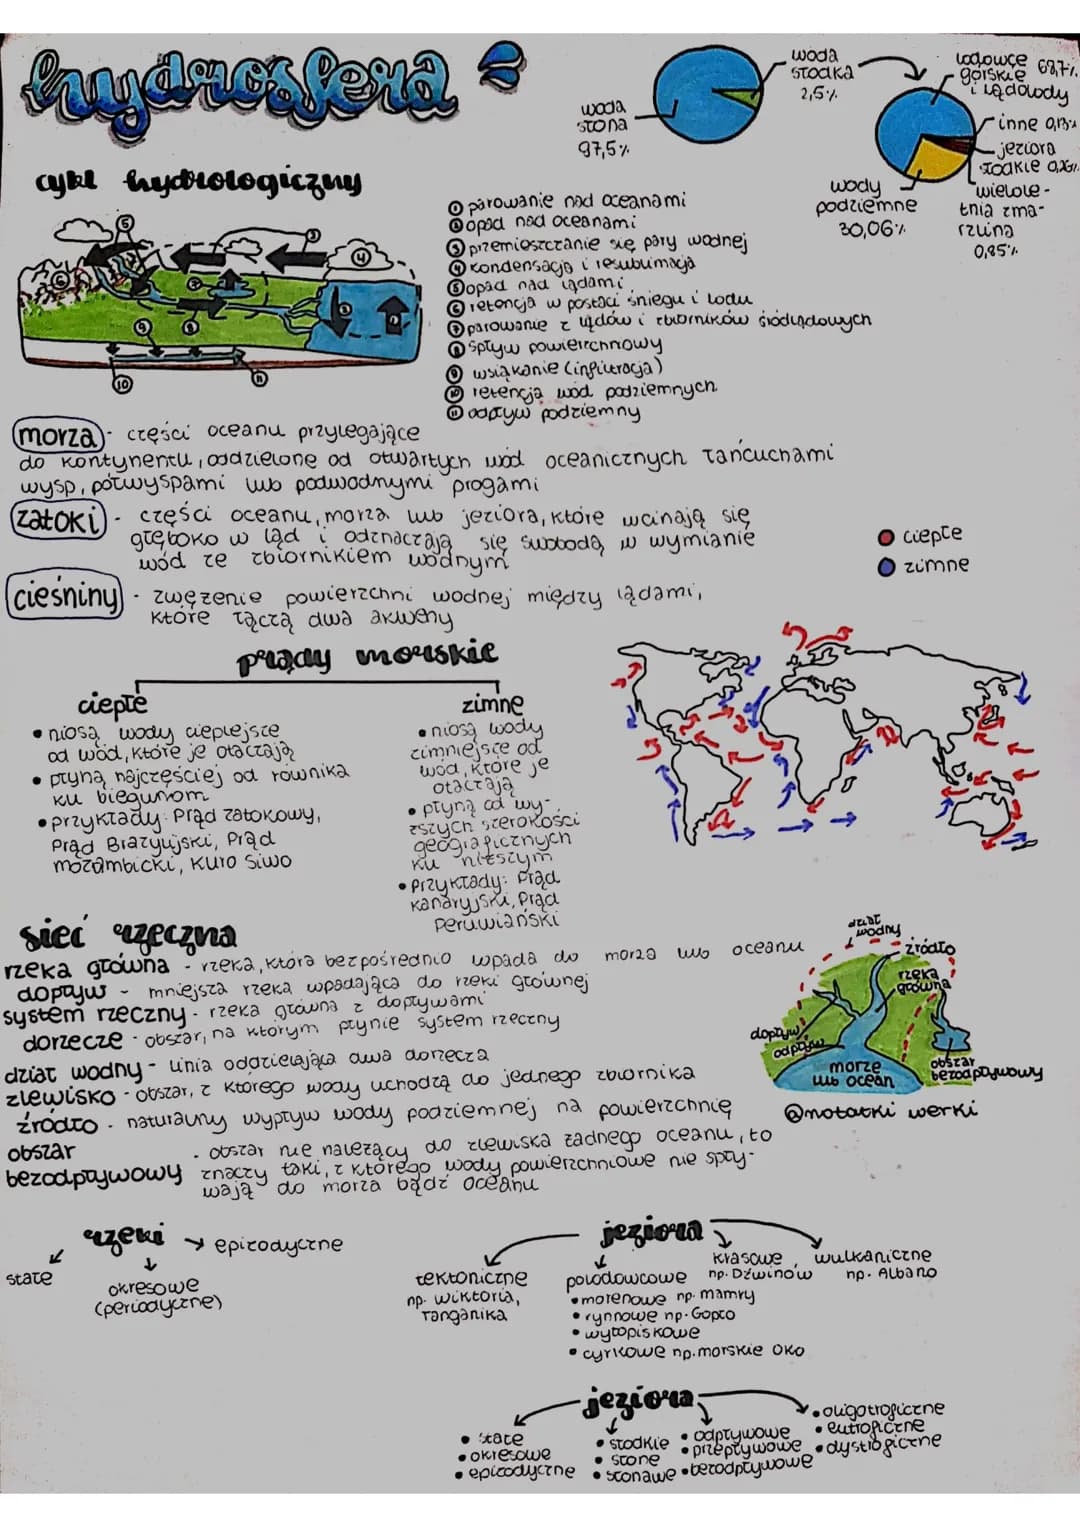 hydrosfera
woda
słona
97,5%
woda
słodka
2,5%
lodowce
górskie 68,7%
i lądolody
inne 0,13%
jeziora
słodkie 0,26%
wielole-
tnia zma-
rzlina
0,85%
wody
podziemne
30,06%
cykl hydrologiczny
5
3
4
6
7
2
1
9
8
10
11
1 parowanie nad oceanami
2 opad nad oceanami
3 przemieszczanie się pary wodnej
4 kondensacja i resublimacja
5 opad nad lądami
6 retencja w postaci śniegu i lodu
7 parowanie z lądów i zbiorników śródlądowych
8 spływ powierzchniowy
9 wsiąkanie (infiltracja)
10 retencja wód podziemnych
11 odpływ podziemny
morza - części oceanu przylegające
do kontynentu, oddzielone od otwartych wód oceanicznych łańcuchami
wysp, półwyspami lub podwodnymi progami
zatoki - części oceanu, morza lub jeziora, które wcinają się
głęboko w ląd i odznaczają się swobodą w wymianie
wód ze zbiornikiem wodnym
cieśniny - zwężenie powierzchni wodnej między lądami,
które łączą dwa akweny
ciepłe
zimne
prądy morskie
ciepłe
• niosą wody cieplejsze
od wód, które je otaczają
• płyną najczęściej od równika
ku biegunom
• przykłady: Prąd zatokowy,
Prąd Brazylijski, Prąd
mozambicki, Kuro Siwo
zimne
• niosą wody
zimniejsze od
wód, które je
otaczają
• płyną od wy-
ższych szerokości
geograficznych
ku niższym
• przykłady: Prąd
kanaryjski, Prąd
Peruwiański
sieć rzeczna
rzeka główna - rzeka, która bezpośrednio wpada do morza lub oceanu
dopływ - mniejsza rzeka wpadająca do rzeki głównej
system rzeczny - rzeka główna z dopływami
dorzecze - obszar, na którym płynie system rzeczny
dział wodny - linia oddzielająca dwa dorzecza
zlewisko - obszar, z którego wody uchodzą do jednego zbiornika
źródło - naturalny wypływ wody podziemnej na powierzchnię
obszar
bezodpływowy - obszar nie należący do zlewiska żadnego oceanu, to
znaczy taki, z którego wody powierzchniowe nie spły-
wają do morza bądź oceanu
dział
wodny
źródło
rzeka
główna
dopływ
odpływ
morze
lub ocean
obszar
bezodpływowy
@notatki werki
rzeki → epizodyczne
stałe
okresowe
(periodyczne)
jeziora
tektoniczne
np. wiktoria,
Tanganika
polodowcowe
• morenowe np. mamry
• rynnowe np. Gopło
• wytopiskowe
• cyrkowe np. morskie oko
krasowe
np. Dźwinów
wulkaniczne
np. Albano
jeziora
• stałe
• okresowe
• epizodyczne
• słodkie
• słone
• słonawe
• odpływowe
• przepływowe
• bezodpływowe
• oligotroficzne
• eutroficzne
• dystroficzne